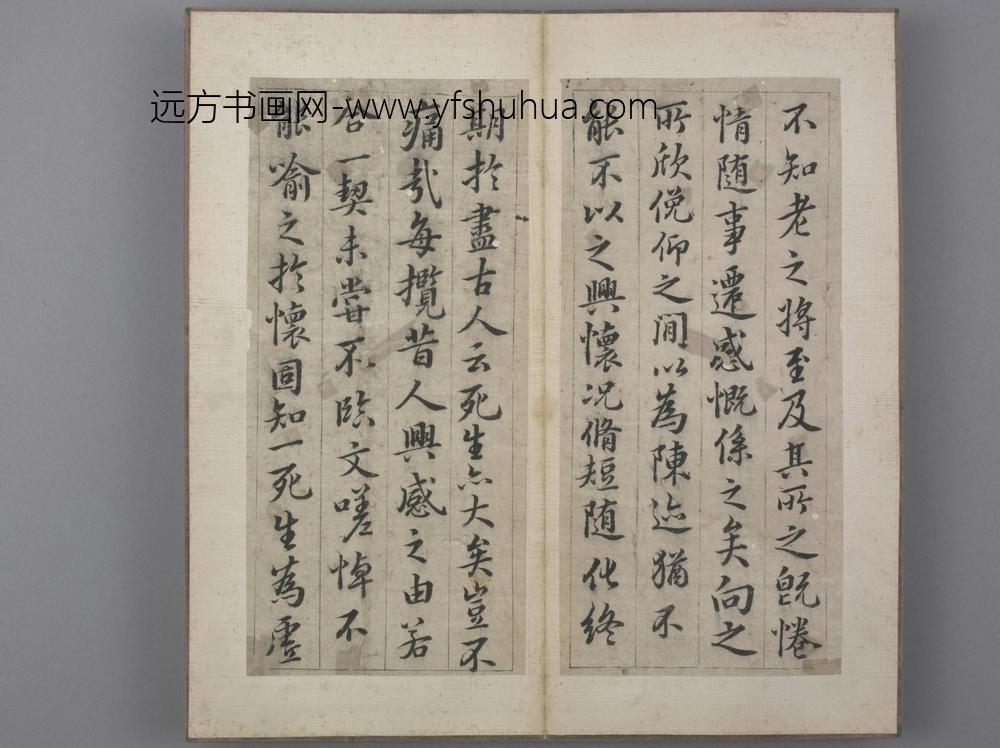 远方书画网-www.yfshuhua.com
不知老之將至及其所之既惓
情随事遷感慨係之矣向之
所欣俛仰之間以為陳迹猶不
能不以之興懷况脩短随化終
期於盡古人云死生亦大矣豈不
痛哉每攬昔人興感之由若
合一契未嘗不臨文嗟悼不
能喻之於懷固知一死生為虛